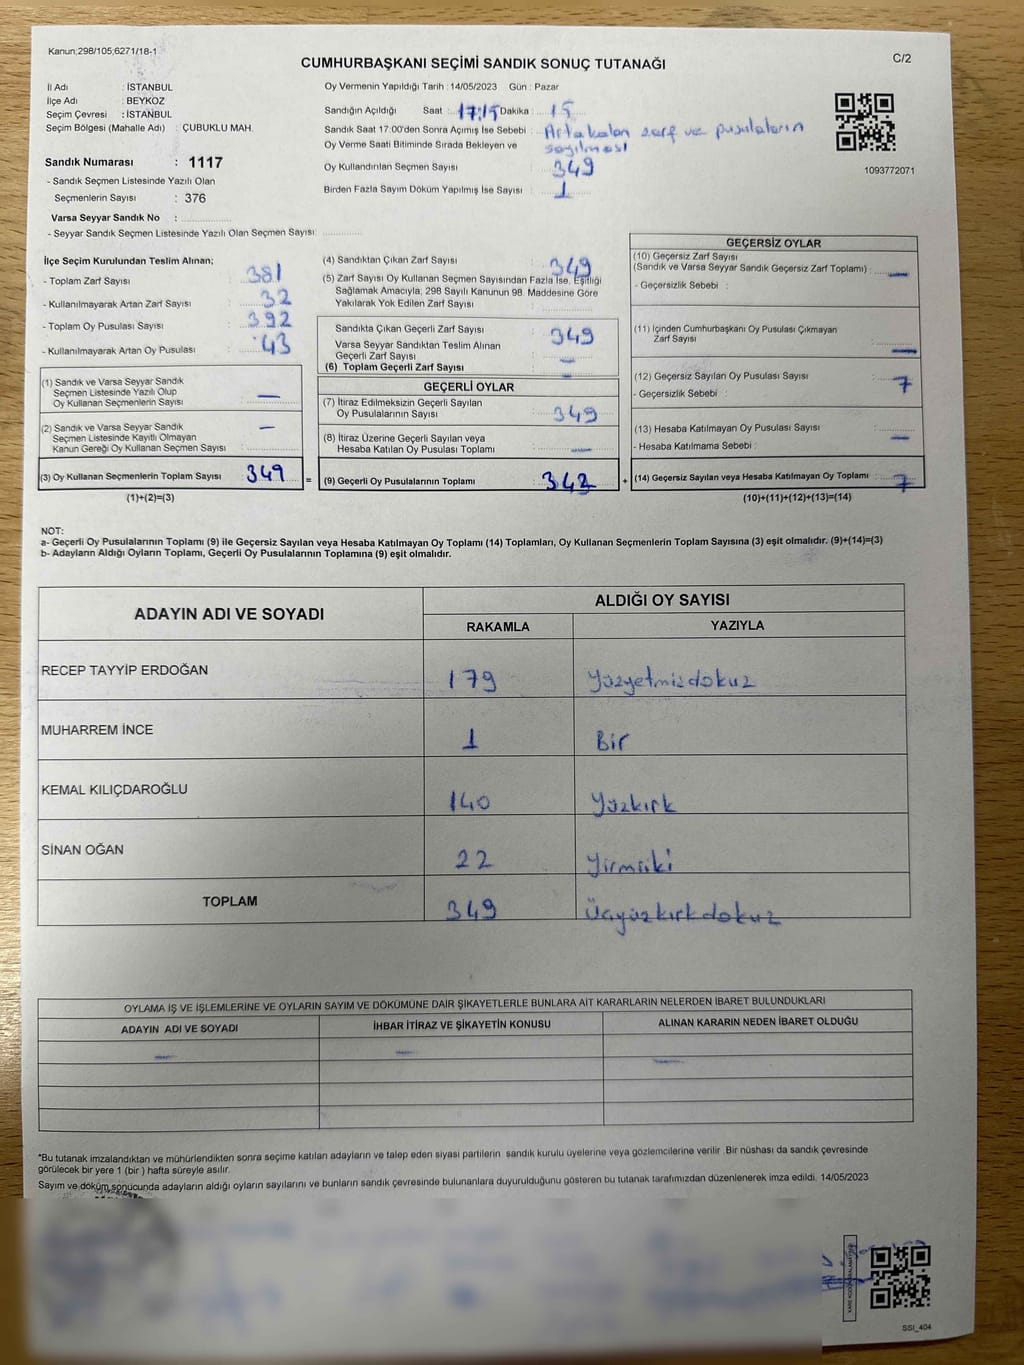 Kanun,298/105,6271/18-1
C/2
CUMHURBAŞKANI SEÇİMİ SANDIK SONUÇ TUTANAĞI
İl Adı : İSTANBUL
İlçe Adı : BEYKOZ
Seçim Çevresi : İSTANBUL
Seçim Bölgesi (Mahalle Adı) : ÇUBUKLU MAH.
Sandık Numarası : 1117
- Sandık Seçmen Listesinde Yazılı Olan
Seçmenlerin Sayısı : 376
Varsa Seyyar Sandık No :
- Seyyar Sandık Seçmen Listesinde Yazılı Olan Seçmen Sayısı:
Oy Vermenin Yapıldığı Tarih : 14/05/2023 Gün : Pazar
Sandığın Açıldığı Saat : 17:15 Dakika : 15
Sandık Saat 17:00'den Sonra Açımış İse Sebebi : Artakalan zarf ve pusulaların
Oy Verme Saati Bitiminde Sırada Bekleyen ve sayılması
Oy Kullandırılan Seçmen Sayısı : 349
Birden Fazla Sayım Döküm Yapılmış İse Sayısı : 1
1093772071
İlçe Seçim Kurulundan Teslim Alınan;
- Toplam Zarf Sayısı : 381
- Kullanılmayarak Artan Zarf Sayısı : 32
- Toplam Oy Pusulası Sayısı : 392
- Kullanılmayarak Artan Oy Pusulası : 43
(1) Sandık ve Varsa Seyyar Sandık
Seçmen Listesinde Yazılı Olup
Oy Kullanan Seçmenlerin Sayısı : —
(2) Sandık ve Varsa Seyyar Sandık
Seçmen Listesinde Kayıtlı Olmayan
Kanun Gereği Oy Kullanan Seçmen Sayısı : —
(3) Oy Kullanan Seçmenlerin Toplam Sayısı 349 =
(1)+(2)=(3)
(4) Sandıktan Çıkan Zarf Sayısı : 349
(5) Zarf Sayısı Oy Kullanan Seçmen Sayısından Fazla İse, Eşitliği
Sağlamak Amacıyla, 298 Sayılı Kanunun 98. Maddesine Göre
Yakılarak Yok Edilen Zarf Sayısı :
Sandıkta Çıkan Geçerli Zarf Sayısı : 349
Varsa Seyyar Sandıktan Teslim Alınan
Geçerli Zarf Sayısı : —
(6) Toplam Geçerli Zarf Sayısı : —
GEÇERLİ OYLAR
(7) İtiraz Edilmeksizin Geçerli Sayılan
Oy Pusulalarının Sayısı : 349
(8) İtiraz Üzerine Geçerli Sayılan veya
Hesaba Katılan Oy Pusulası Toplamı : —
(9) Geçerli Oy Pusulalarının Toplamı : 342 +
GEÇERSİZ OYLAR
(10) Geçersiz Zarf Sayısı
(Sandık ve Varsa Seyyar Sandık Geçersiz Zarf Toplamı) : —
- Geçersizlik Sebebi :
(11) İçinden Cumhurbaşkanı Oy Pusulası Çıkmayan
Zarf Sayısı : —
(12) Geçersiz Sayılan Oy Pusulası Sayısı : 7
- Geçersizlik Sebebi :
(13) Hesaba Katılmayan Oy Pusulası Sayısı : —
- Hesaba Katılmama Sebebi :
(14) Geçersiz Sayılan veya Hesaba Katılmayan Oy Toplamı : 7
(10)+(11)+(12)+(13)=(14)
NOT:
a- Geçerli Oy Pusulalarının Toplamı (9) ile Geçersiz Sayılan veya Hesaba Katılmayan Oy Toplamı (14) Toplamları, Oy Kullanan Seçmenlerin Toplam Sayısına (3) eşit olmalıdır. (9)+(14)=(3)
b- Adayların Aldığı Oyların Toplamı, Geçerli Oy Pusulalarının Toplamına (9) eşit olmalıdır.
ADAYIN ADI VE SOYADI ALDIĞI OY SAYISI
RAKAMLA YAZIYLA
RECEP TAYYİP ERDOĞAN 179 Yüzyetmişdokuz
MUHARREM İNCE 1 Bir
KEMAL KILIÇDAROĞLU 140 Yüzkırk
SİNAN OĞAN 22 Yirmiiki
TOPLAM 349 Üçyüzkırkdokuz
OYLAMA İŞ VE İŞLEMLERİNE VE OYLARIN SAYIM VE DÖKÜMÜNE DAİR ŞİKAYETLERLE BUNLARA AİT KARARLARIN NELERDEN İBARET BULUNDUKLARI
ADAYIN ADI VE SOYADI İHBAR İTİRAZ VE ŞİKAYETİN KONUSU ALINAN KARARIN NEDEN İBARET OLDUĞU
— — —
*Bu tutanak imzalandıktan ve mühürlendikten sonra seçime katılan adayların ve talep eden siyasi partilerin sandık kurulu üyelerine veya gözlemcilerine verilir. Bir nüshası da sandık çevresinde
görülecek bir yere 1 (bir ) hafta süreyle asılır.
Sayım ve döküm sonucunda adayların aldığı oyların sayılarını ve bunların sandık çevresinde bulunanlara duyurulduğunu gösteren bu tutanak tarafımızdan düzenlenerek imza edildi. 14/05/2023
SSİ_404